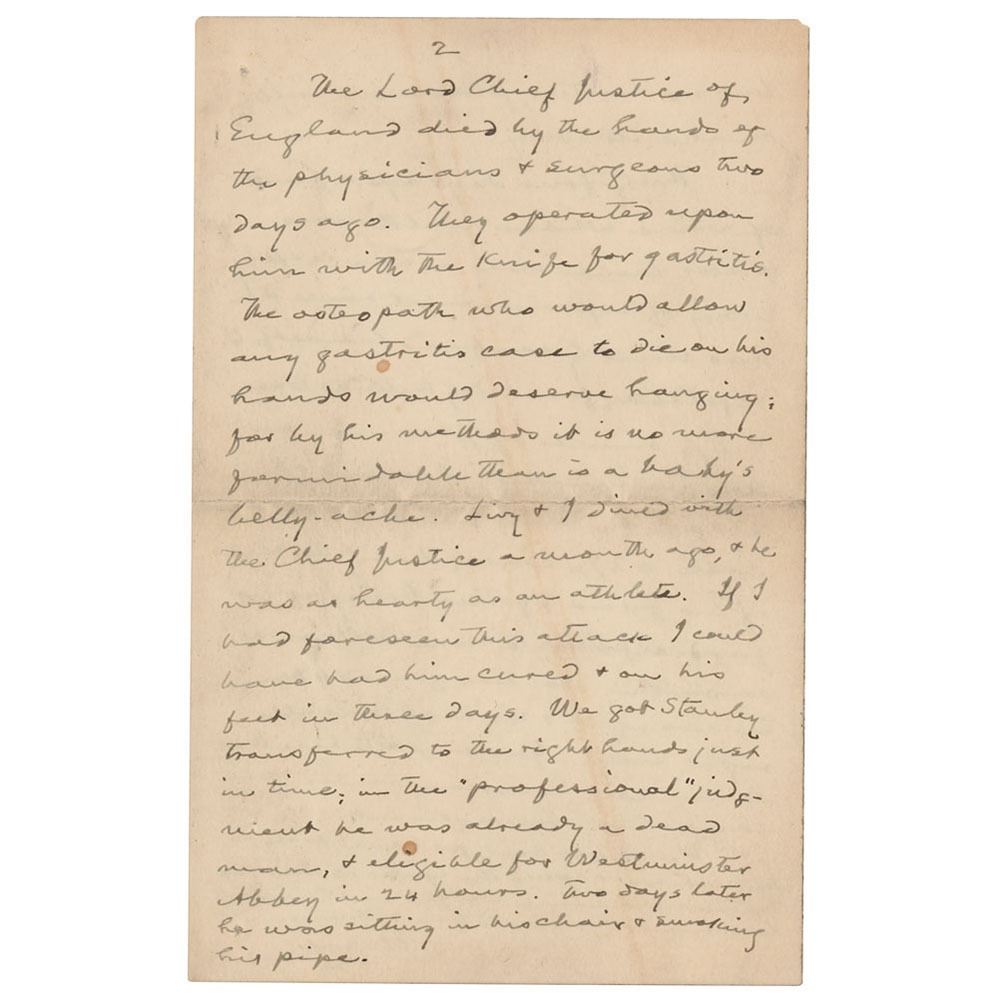 2
The Lord Chief Justice of
England died by the hands of
the physicians & surgeons two
days ago. They operated upon
him with the knife for gastritis.
The osteopath who would allow
any gastritis case to die on his
hands would deserve hanging;
for by his methods it is no more
formidable than is a baby's
belly-ache. Livy & I dined with
the Chief Justice a month ago, & he
was as hearty as an athlete. If I
had foreseen this attack I could
have had him cured & on his
feet in three days. We got Stanley
transferred to the right hands just
in time; in the "professional" judg-
ment he was already a dead
man, & eligible for Westminster
Abbey in 24 hours. Two days later
he was sitting in his chair & smoking
his pipe.